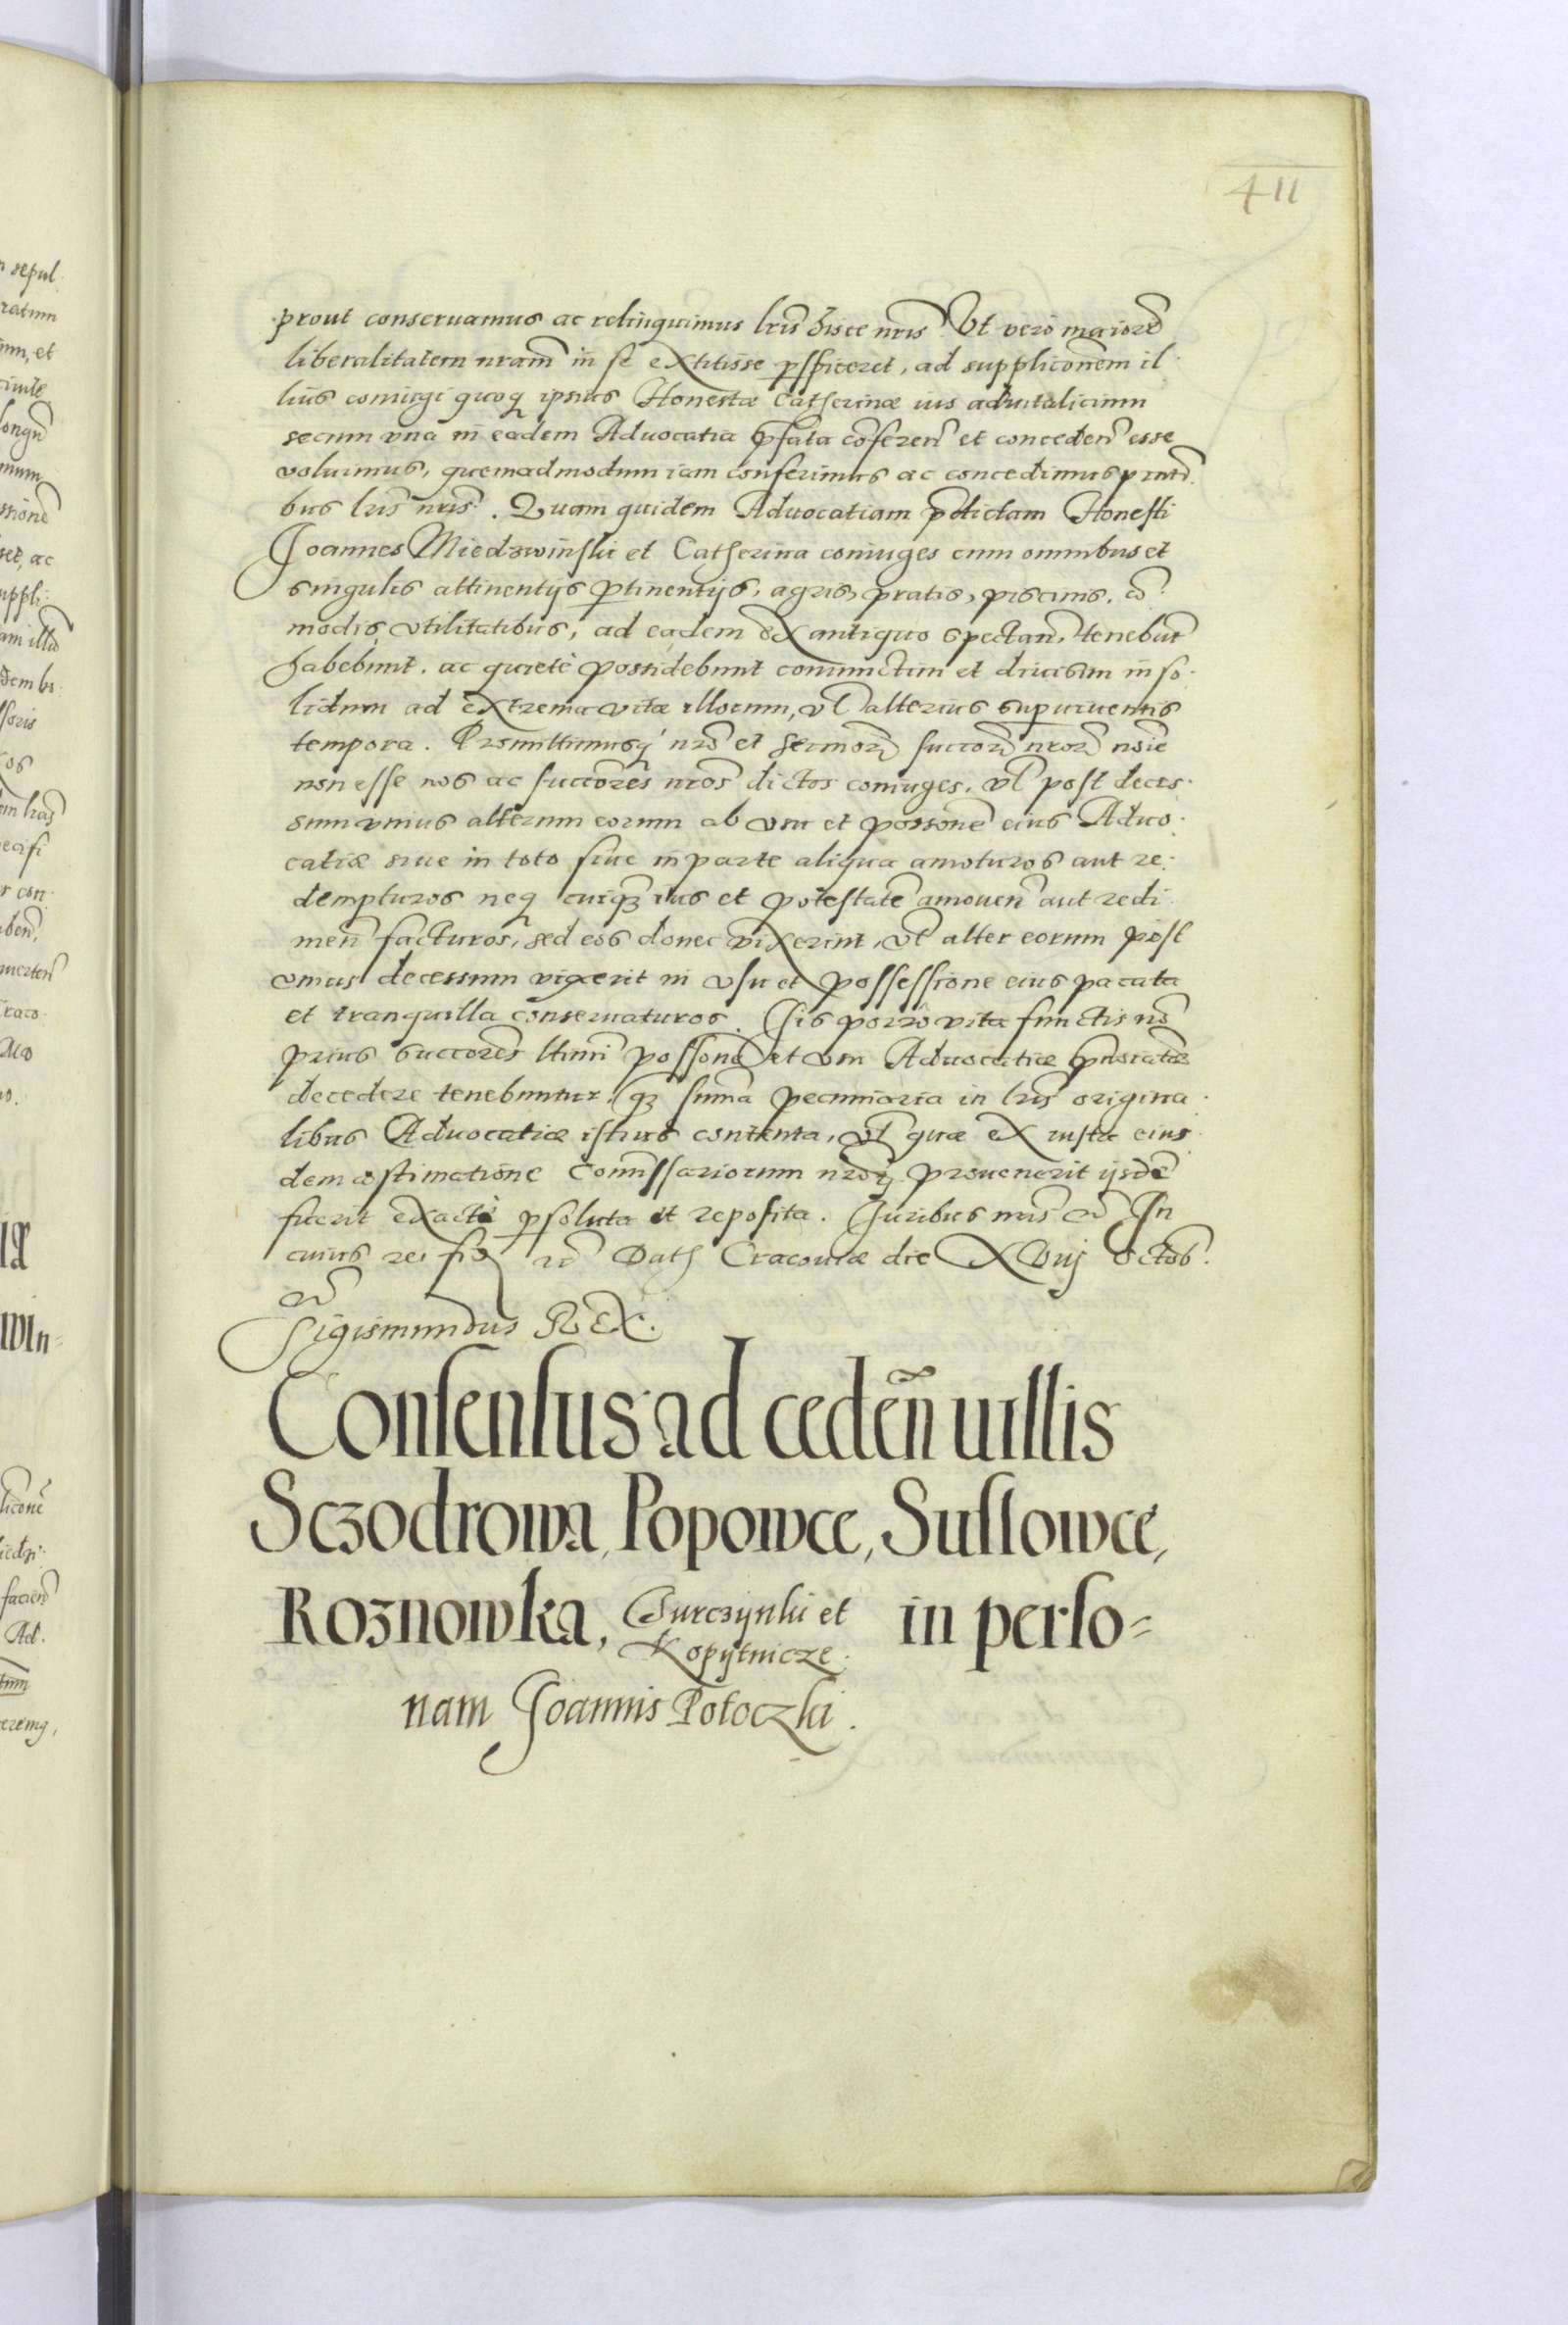 411
prout conseruamus ac relinquimus lr̃is hisce nr̃is. Vt vero maiorẽ
liberalitatem nram̃ in se extitisse pspiceret, ad supplicoñem il
lius coniugi quoq ipsius Honestæ Catherinæ ius aduitalicium
secum vna in eadem Advocatia pfata coñferen̄ et conceden̄ esse
voluimus, quemadmodum iam conferimus ac concedimus pntĩ
bus lr̃is nr̃is. Quam quidem Advocatiam pdictam Honesti
Joannes Miedzwinski et Catherina coniuges cum omnibus et
singulis attinentijs ptinentijs, agris, pratis, piscinis, cõ
modis, vtilitatibus, ad eadem ex antiquo spectan̄, tenebunt̃
habebunt. ac quietè possidebunt coniunctim et diuisim in so
lidum ad extrema vitæ illorum, vl̃ alterius supuiuentis
tempora. Promittimusq nr̃o et Sermorũ succorũ nr̃orũ noĩe
non esse nos ac succorẽs nr̃os dictos coniuges, vl̃ post deces
sum vnius alterum eorum ab vsu et possonẽ eius Aduo
catiæ siue in toto siue in parte aliqua amoturos aut re
dempturos neq cuiq̃ ius et potestatẽ amouen̄ aut redi
men̄ facturos, sed eos donec vixerint, vl̃ alter eorum post
vnius decessum vixerit in vsu et possessione eius pacata
et tranquilla conseruaturos. Jis porrò vita functis nõ
prius succorẽs ltimĩ possonẽ et vsu Advocatiæ
decedere tenebuntur. q̃ sum̃a pecuniaria in lr̃is origina
libus Advocatiæ istius contenta, vl̃ quæ ex iusta eius
dem æstimatione Com̃issariorum nr̃orũ prouenerit ijsdẽ
fuerit exactè psoluta et reposita. Juribus nr̃is etc̃ In
cuius rei etc̃ Dat Cracouiæ die XVIIJ octob.
etc̃
Sigismundus REX.
Consensus ad ceden̄ uillis
Sczodrowa, Popowce, Sussowce,
Roznowka, Curczynki et Kopytnicze. in perso=
nam Joannis Potoczki.